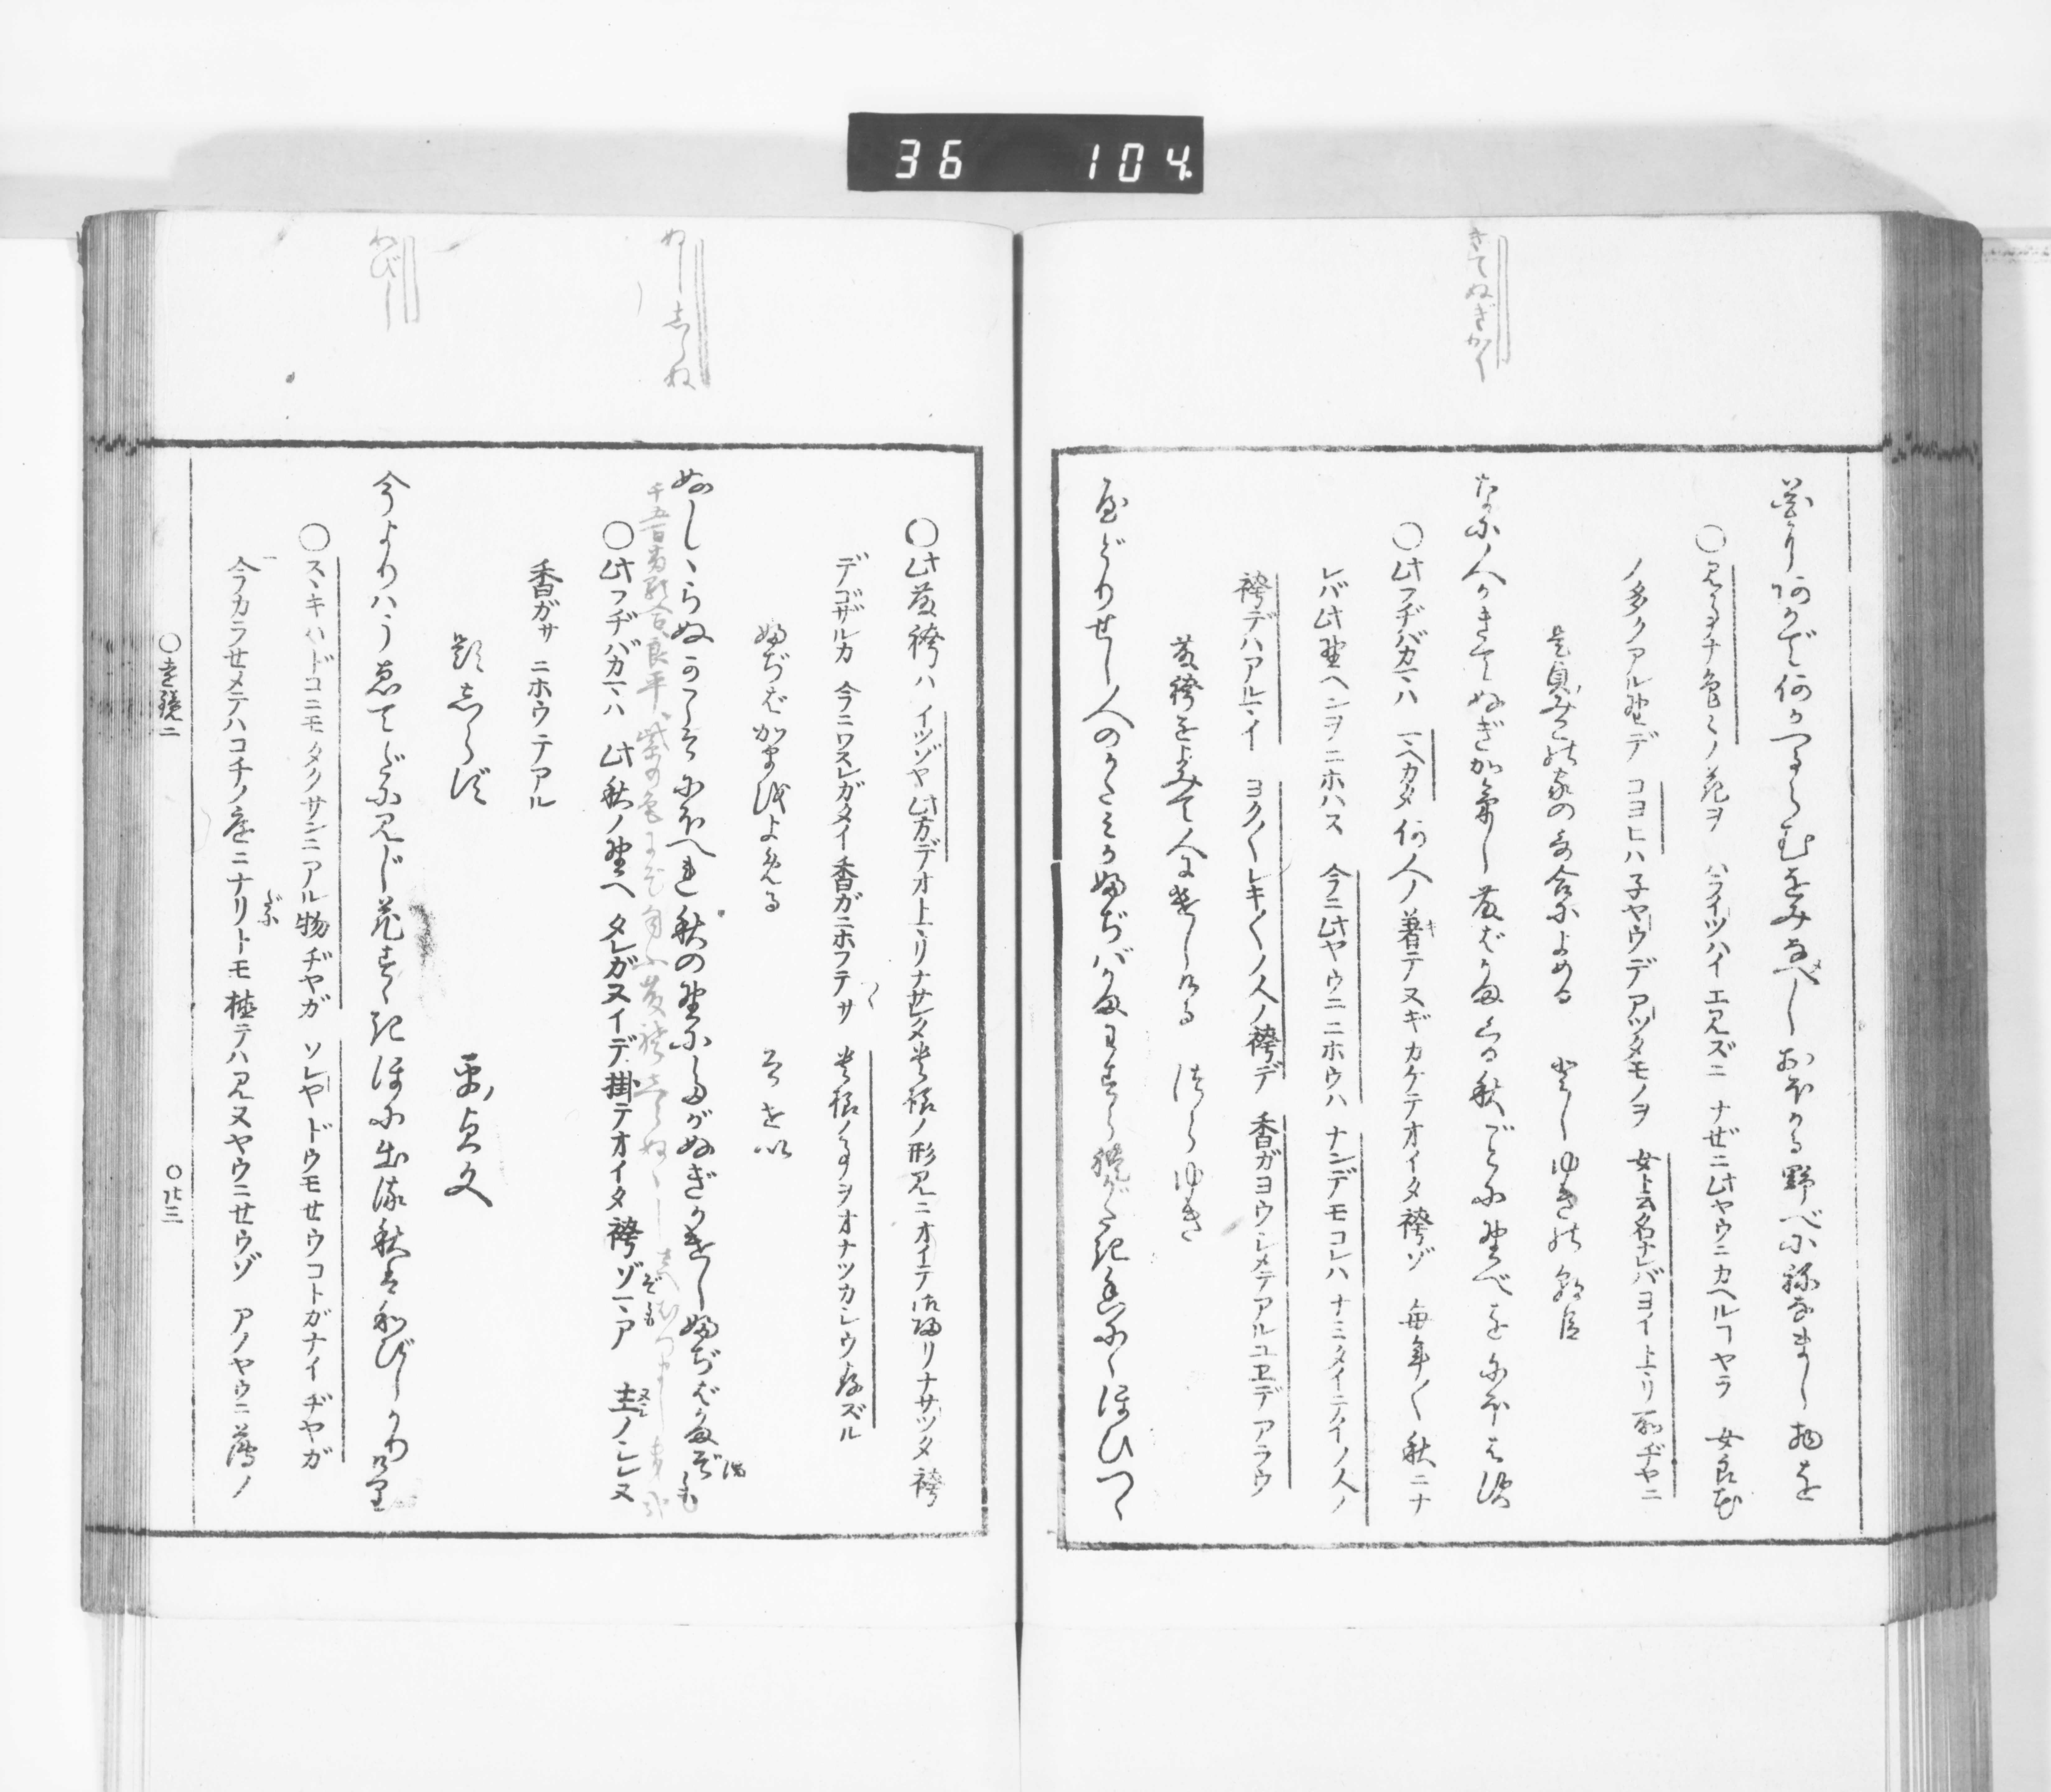 きてぬぎかく
花にあかで何かへるらむをみなへしおほかる野べにねなまし物を
○見事ナ色々ノ花ヲ ハライツハイエ見ズニ ナゼニ此ヤウニカヘルヿヤラ 女良花
ノ多クアル野デ コヨヒハ子ヤウデアツタモノヲ 女ト云名ナレバヨイトマリ所ヂヤニ
是貞みこの家の歌合によめる としゆきの朝臣
なに人かきてぬぎかけし藤ばかまくる秋ごとに野べをにほはす
○此フヂバカマハ マヘカタ何人ノ著テヌギカケテオイタ袴ゾ 毎年〱秋ニナ
レバ此野ヘンヲニホハス 今ニ此ヤウニニホウハ ナンデモコレハナミタイテイノ人ノ
袴デハアルマイ ヨク〱レキ〱ノ人ノ袴デ 香ガヨウシメテアルユヱデアラウ
藤袴をよみて人につかはしける つらゆき
やどりせし人のかたみかふぢバかまわすられがたき香にゝほひつゝ
ぬししらぬ
わびし
○此藤袴ハ イツゾヤ此方デオトマリナサレタ貴様ノ形見ニオイテ御帰リナサツタ袴
デゴザルカ 今ニワスレガタイ香ガニホフテサ 貴様ノ事ヲオナツカシウ存ズル
ふぢばかまをよめる そせい
ぬしゝらぬ香こそにほへれ秋の野にたがぬぎかけしふぢばかまぞも
千五百番歌合良平
○此フヂバカマハ 此秋ノ野ヘ タレガヌイデ掛テオイタ袴ゾマア 主ノシレヌ
香ガサ ニホウテアル
題しらず 平貞文
今よりハうゑてだに見じ花すゝきほに出る秋はわびしかりけり
○スヽキハドコニモタクサンニアル物ヂヤガ ソレヤドウモセウコトガナイヂヤガ
今カラセメテハコチノ庭ニナリトモ植テハ見ヌヤウニセウゾ アノヤウニ薄ノ
○遠鏡二 ○廿三
36 104